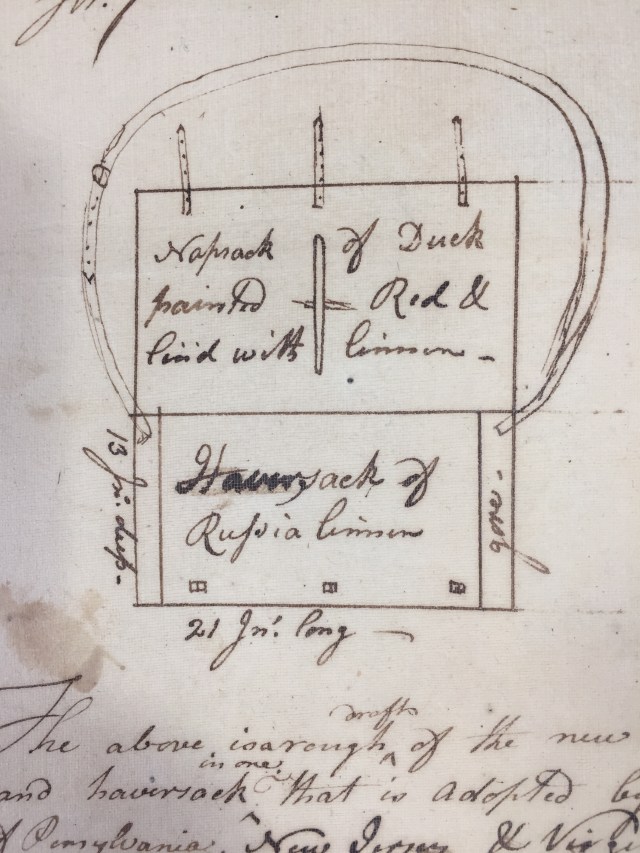 Napsack of Duck
painted Red &
lin'd with linnen -
Haversack of
Russia linnen
13 In. deep -
gore -
21 In. long -
drafts
The above is a rough ^ of the new
in one
and haversack ^ that is adopted by
Pensylvania, New Jersey & Virgi